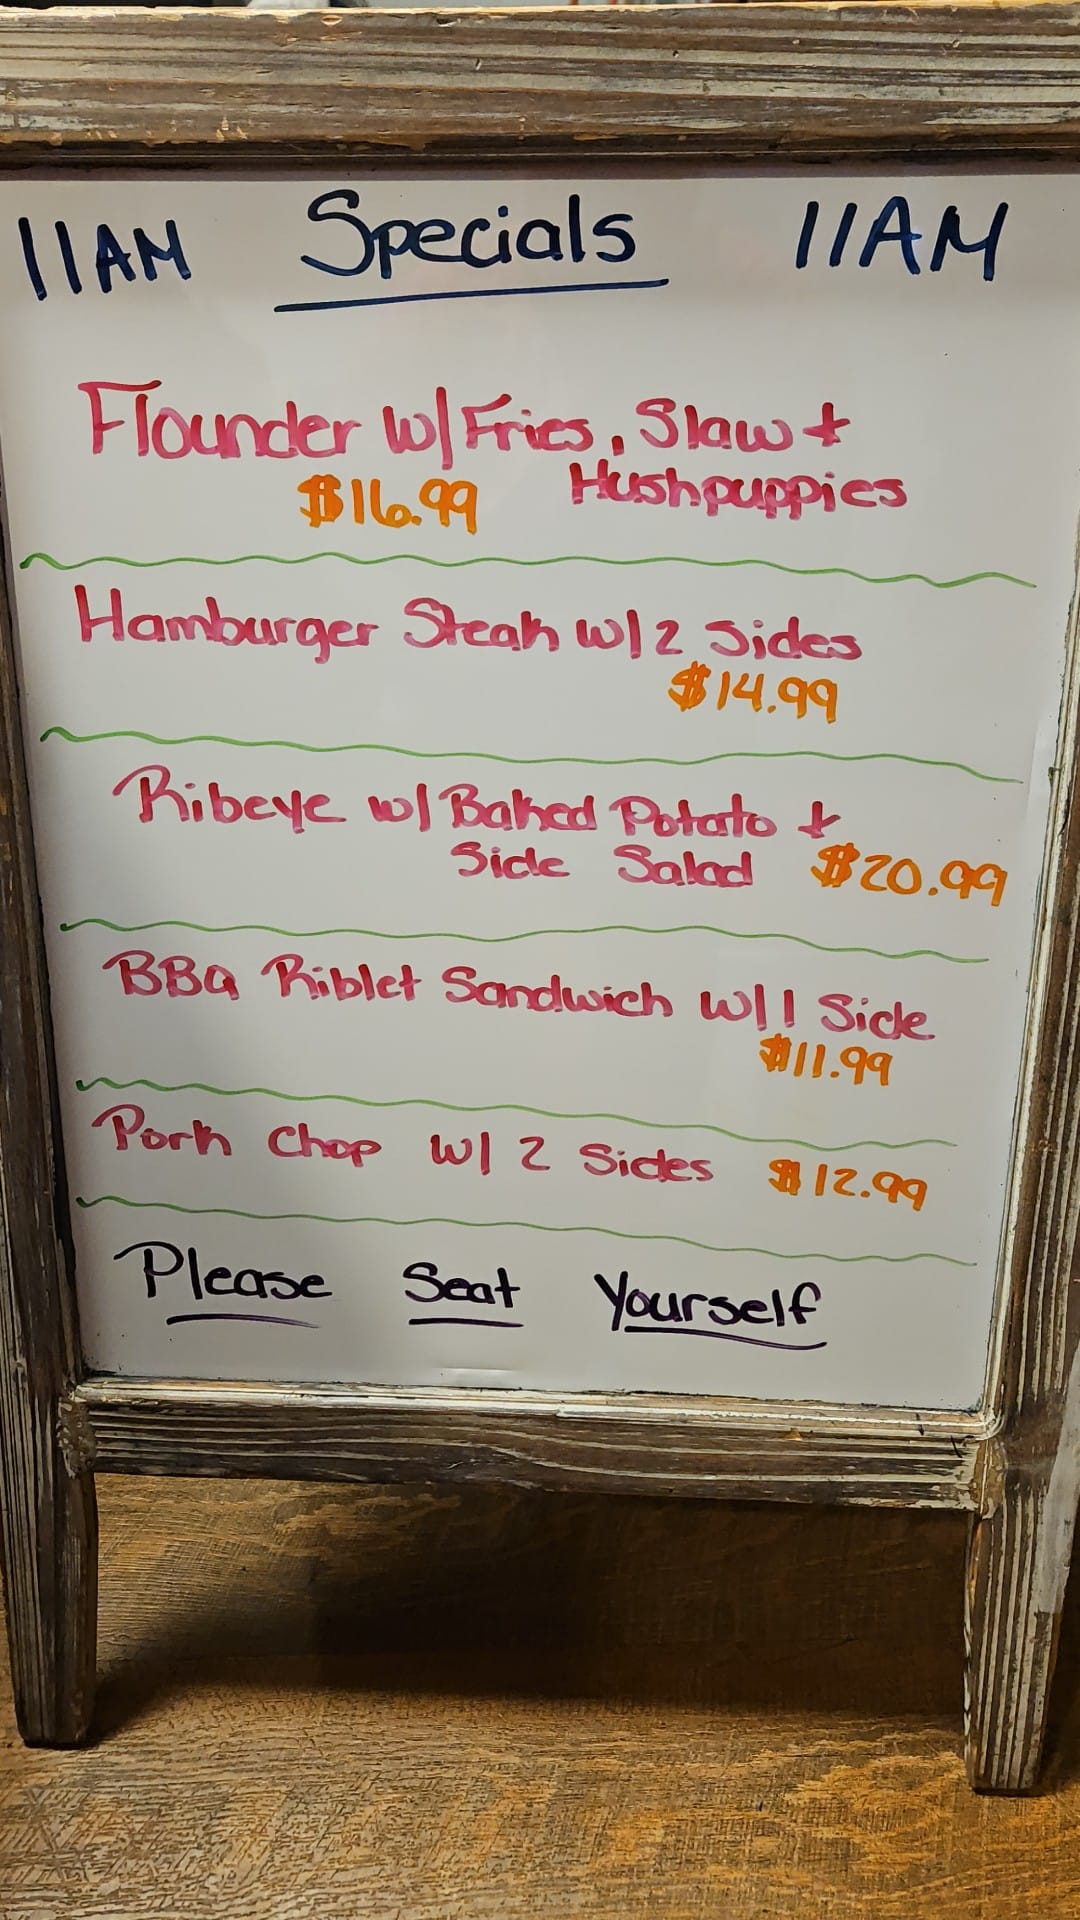 11AM Specials 11AM
Flounder w/ Fries, Slaw +
$16.99 Hushpuppies
Hamburger Steak w/ 2 Sides
$14.99
Ribeye w/ Baked Potato +
Side Salad $20.99
BBQ Riblet Sandwich w/ 1 Side
$11.99
Pork Chop w/ 2 Sides $12.99
Please Seat Yourself